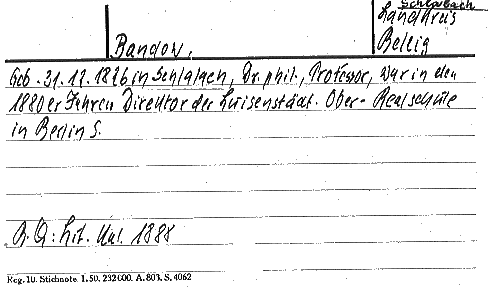 Schlalach
Landkreis
Bandow, Belzig
Geb. 31.12.1826 in Schlalach, Dr. phil., Professor, war in den
1880er Jahren Direktor der Luisenstädt. Ober-Realschule
in Berlin S.
B. Q: Lit. Kal. 1888
Reg. 10. Stichnote. 1. 50. 232000. A. 803. S. 4062